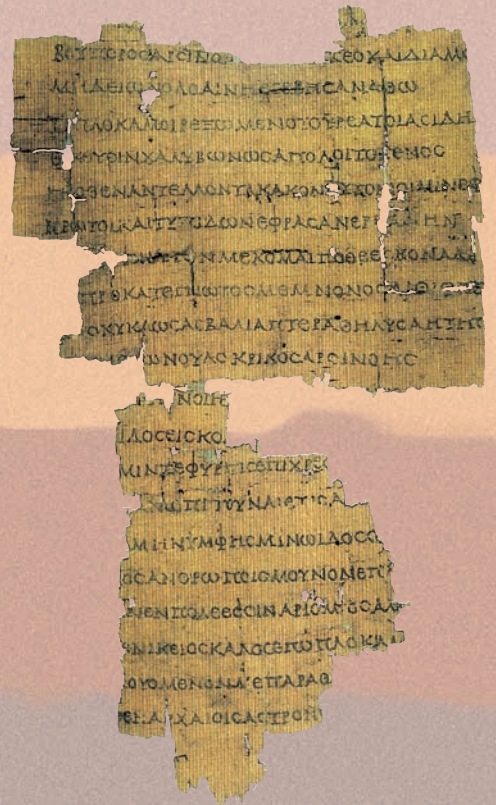 ΒΟΥΠΟΡΟΣΑΡΣΙΝΟ ΣΕΟΚΑΙΔΙΑΜΕ
ΜΗΔΕΙΩΝΟΛΟΑΙΝΗΕΣΕΒΗΣΑΝΑΘΩ
ΤΙΠΛΟΚΑΜΟΙΡΕΞΩΜΕΝΟΤΟΥΡΕΑΤΟΙΑΣΙΔΗ
ΟΥΣΙΝΧΑΛΥΒΩΝΩΣΑΠΟΛΟΙΤΟΓΕΝΟΣ
ΟΘΕΝΑΝΤΕΛΛΟΝΤΑΚΑΚΟΝΦΥΤΟΝΟΙΜΙΝΕΦ
ΠΡΩΤΟΙΚΑΙΤΥΠΙΔΩΝΕΦΡΑΣΑΝΕΡΓΑΣΙΗΝ
ΤΟΝΜΕΚΟΜΑΙΠΟΘΕΕΣΚΟΝΑΔΕ
ΠΡΟΚΑΤΕΓΝΩΤΟΣΜΕΜΝΟΝΟΣΑΙΘΙΟΠΟΣ
ΤΟΚΥΚΛΩΣΑΣΒΑΛΙΑΠΤΕΡΑΘΗΛΥΣΑΗΤΗΣ
ΩΝΟΥΛΟΚΡΙΚΟΣΑΡΣΙΝΟΗΣ
ΝΟΙΗΕ
ΙΔΟΣΕΙΣΚΟ
ΜΙΝΖΕΦΥΡΙΤΙΣΕΠΙΧΡΕΟ
ΝΩΠΙΤΟΥΝΑΙΕΤΙΣΑ
ΜΗΝΥΜΦΗΣΜΙΝΩΙΔΟΣΟ
ΟΣΑΝΘΡΩΠΟΙΣΜΟΥΝΟΝΕΠΙ
ΕΝΠΟΛΕΕΣΣΙΝΑΡΙΘΜΙΟΣΑΛΛ
ΝΙΚΕΙΟΣΚΑΛΟΣΕΓΩΠΛΟΚΑΜ
ΟΥΟΜΕΝΟΝΜΕΠΑΡΑΘ
ΕΝΑΡΧΑΙΟΙΣΑΣΤΡΟΝ